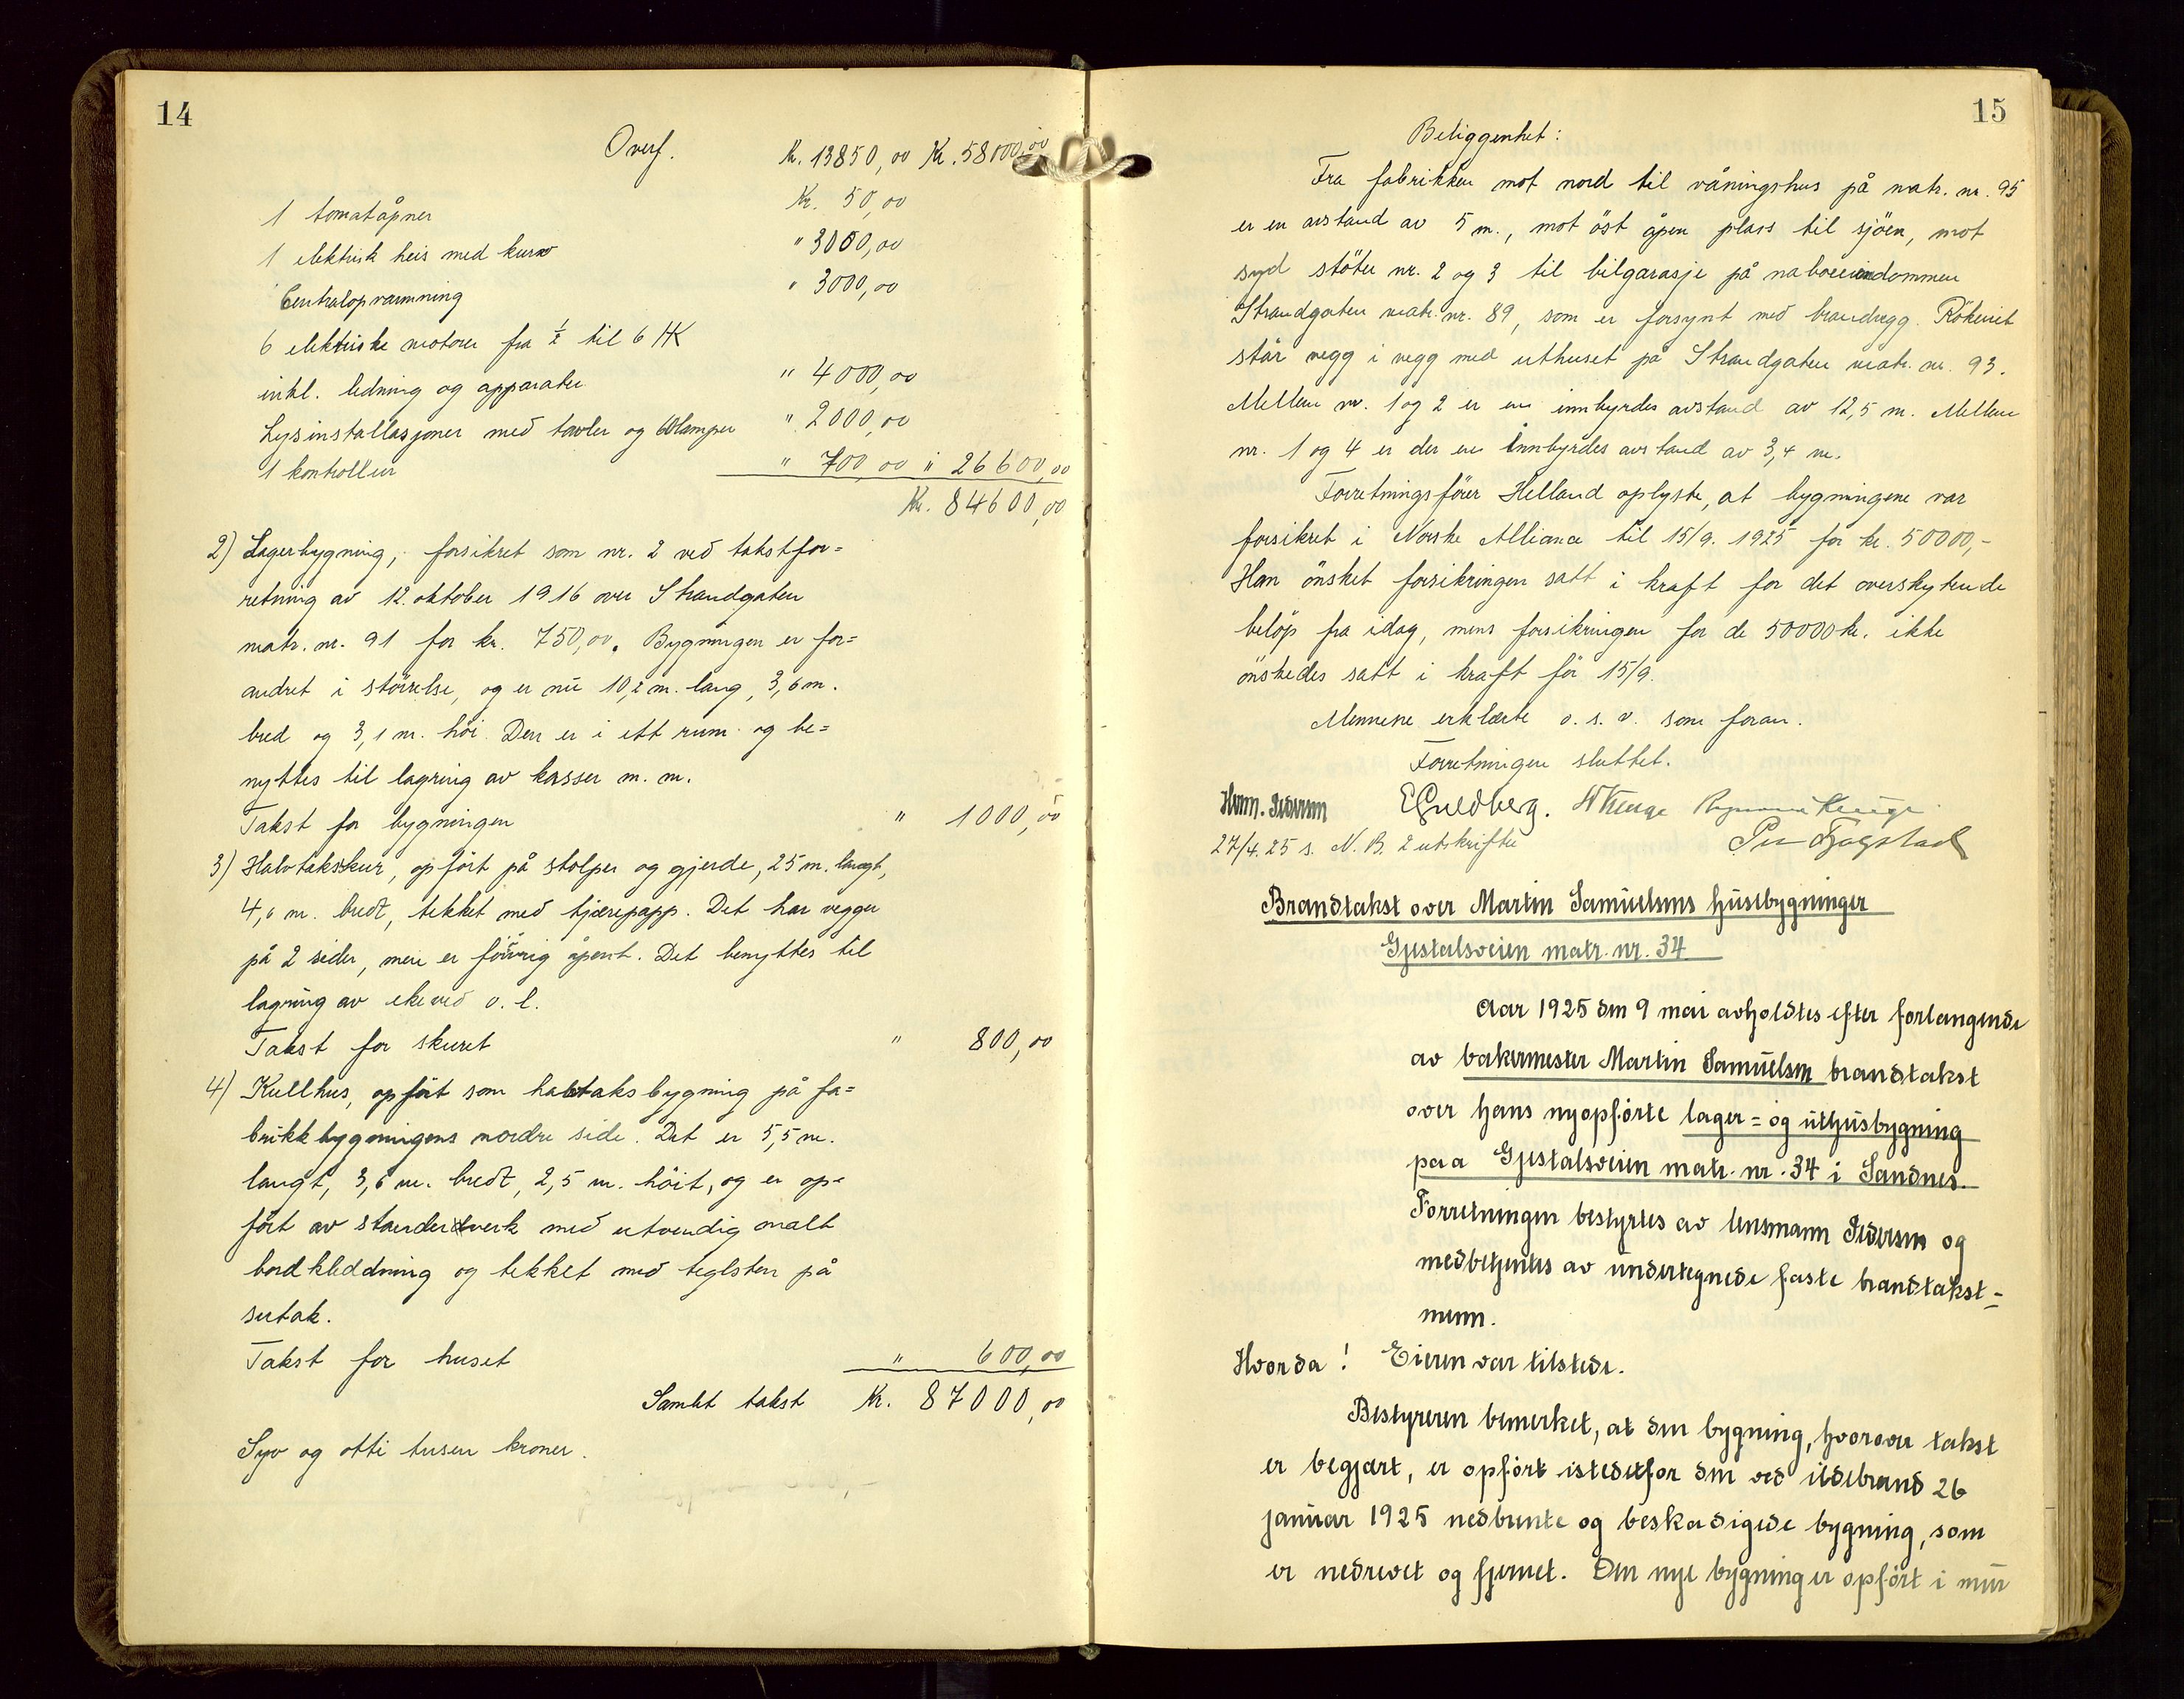 14
Overf. Kr. 13850,00 Kr. 58000,00
1 tomatåpner Kr. 50,00
1 elektrisk heis med kurv " 3000,00
Centralopvarmning " 3000,00
6 elektriske motorer fra ½ til 6 HK
inkl. ledning og apparater " 4000,00
Lysinstallasjoner med tavler og 60 lamper " 2000,00
1 kontrollur " 700,00 " 26600,00
Kr. 84600,00
2) Lagerbygning, forsikret som nr. 2 ved takstfor=
retning av 12. oktober 1916 over Strandgaten
matr. nr. 91 for kr. 750,00. Bygningen er for=
andret i størrelse, og er nu 10,2 m. lang, 3,6 m.
bred og 3,1 m. høi. Den er i ett rum og be=
nyttes til lagring av kasser m. m.
Takst for bygningen " 1000,00
3) Halvtaksskur, opført på stolper og gjerde, 25 m. langt,
4,6 m. bredt, tekket med tjærepapp. Det har vegger
på 2 sider, men er forøvrig åpent. Det benyttes til
lagring av ekeved o. l.
Takst for skuret " 800,00
4) Kullhus, opført som halvtaksbygning på fa=
brikkbygningens nordre side. Det er 5,5 m.
langt, 3,6 m. bredt, 2,5 m. höit, og er op=
ført av stenderverk med utvendig malt
bordkleddning og tekket med teglsten på
sutak.
Takst for huset " 600,00
Samlet takst Kr. 87000,00
Syv og otti tusen kroner.
15
Beliggenhet:
Fra fabrikken mot nord til våningshus på matr. nr. 95
er en avstand av 5 m., mot öst åpen plass til sjöen, mot
syd stöter nr. 2 og 3 til bilgarasje på naboeiendommen
Strandgaten matr. nr. 89, som er forsynt med brandvegg. Rökeriet
står vegg i vegg med uthuset på Strandgaten matr. nr. 93.
Mellem nr. 1 og 2 er en innbyrdes avstand av 12,5 m. Mellem
nr. 1 og 4 er der en innbyrdes avstand av 3,4 m.
Forretningsförer Helland oplyste, at bygningene var
forsikret i Norske Alliance til 15/9. 1925 for kr. 50000,-
Han önsket forsikringen satt i kraft for det overskytende
belöp fra idag, mens forsikringen for de 50000 kr. ikke
önskedes satt i kraft för 15/9.
Mennene erklærte o. s. v. som foran.
Forretningen sluttet.
Ham. Pedersen E Guldberg.
27/4.25 s. N. B. 2 utskrifter
Brandtakst over Martin Samuelsens husebygninger
Gjestalsveien matr. nr. 34
Aar 1925 den 9 mai avholdtes efter forlangende
av bakermester Martin Samuelsen brandtakst
over hans nyopførte lager= og uthusbygning
paa Gjestalsveien matr. nr. 34 i Sandnes.
Forretningen bestyrtes av lensmann Pedersen og
medbetjentes av undertegnede faste brandtakst=
menn.
Hvorda! Eieren var tilstede.
Bestyreren bemerket, at den bygning, hvorover takst
er begjært, er opført istedetfor den ved ildebrand 26
januar 1925 nedbrente og beskadigede bygning, som
er nedrevet og fjernet. Den nye bygning er opført i mur